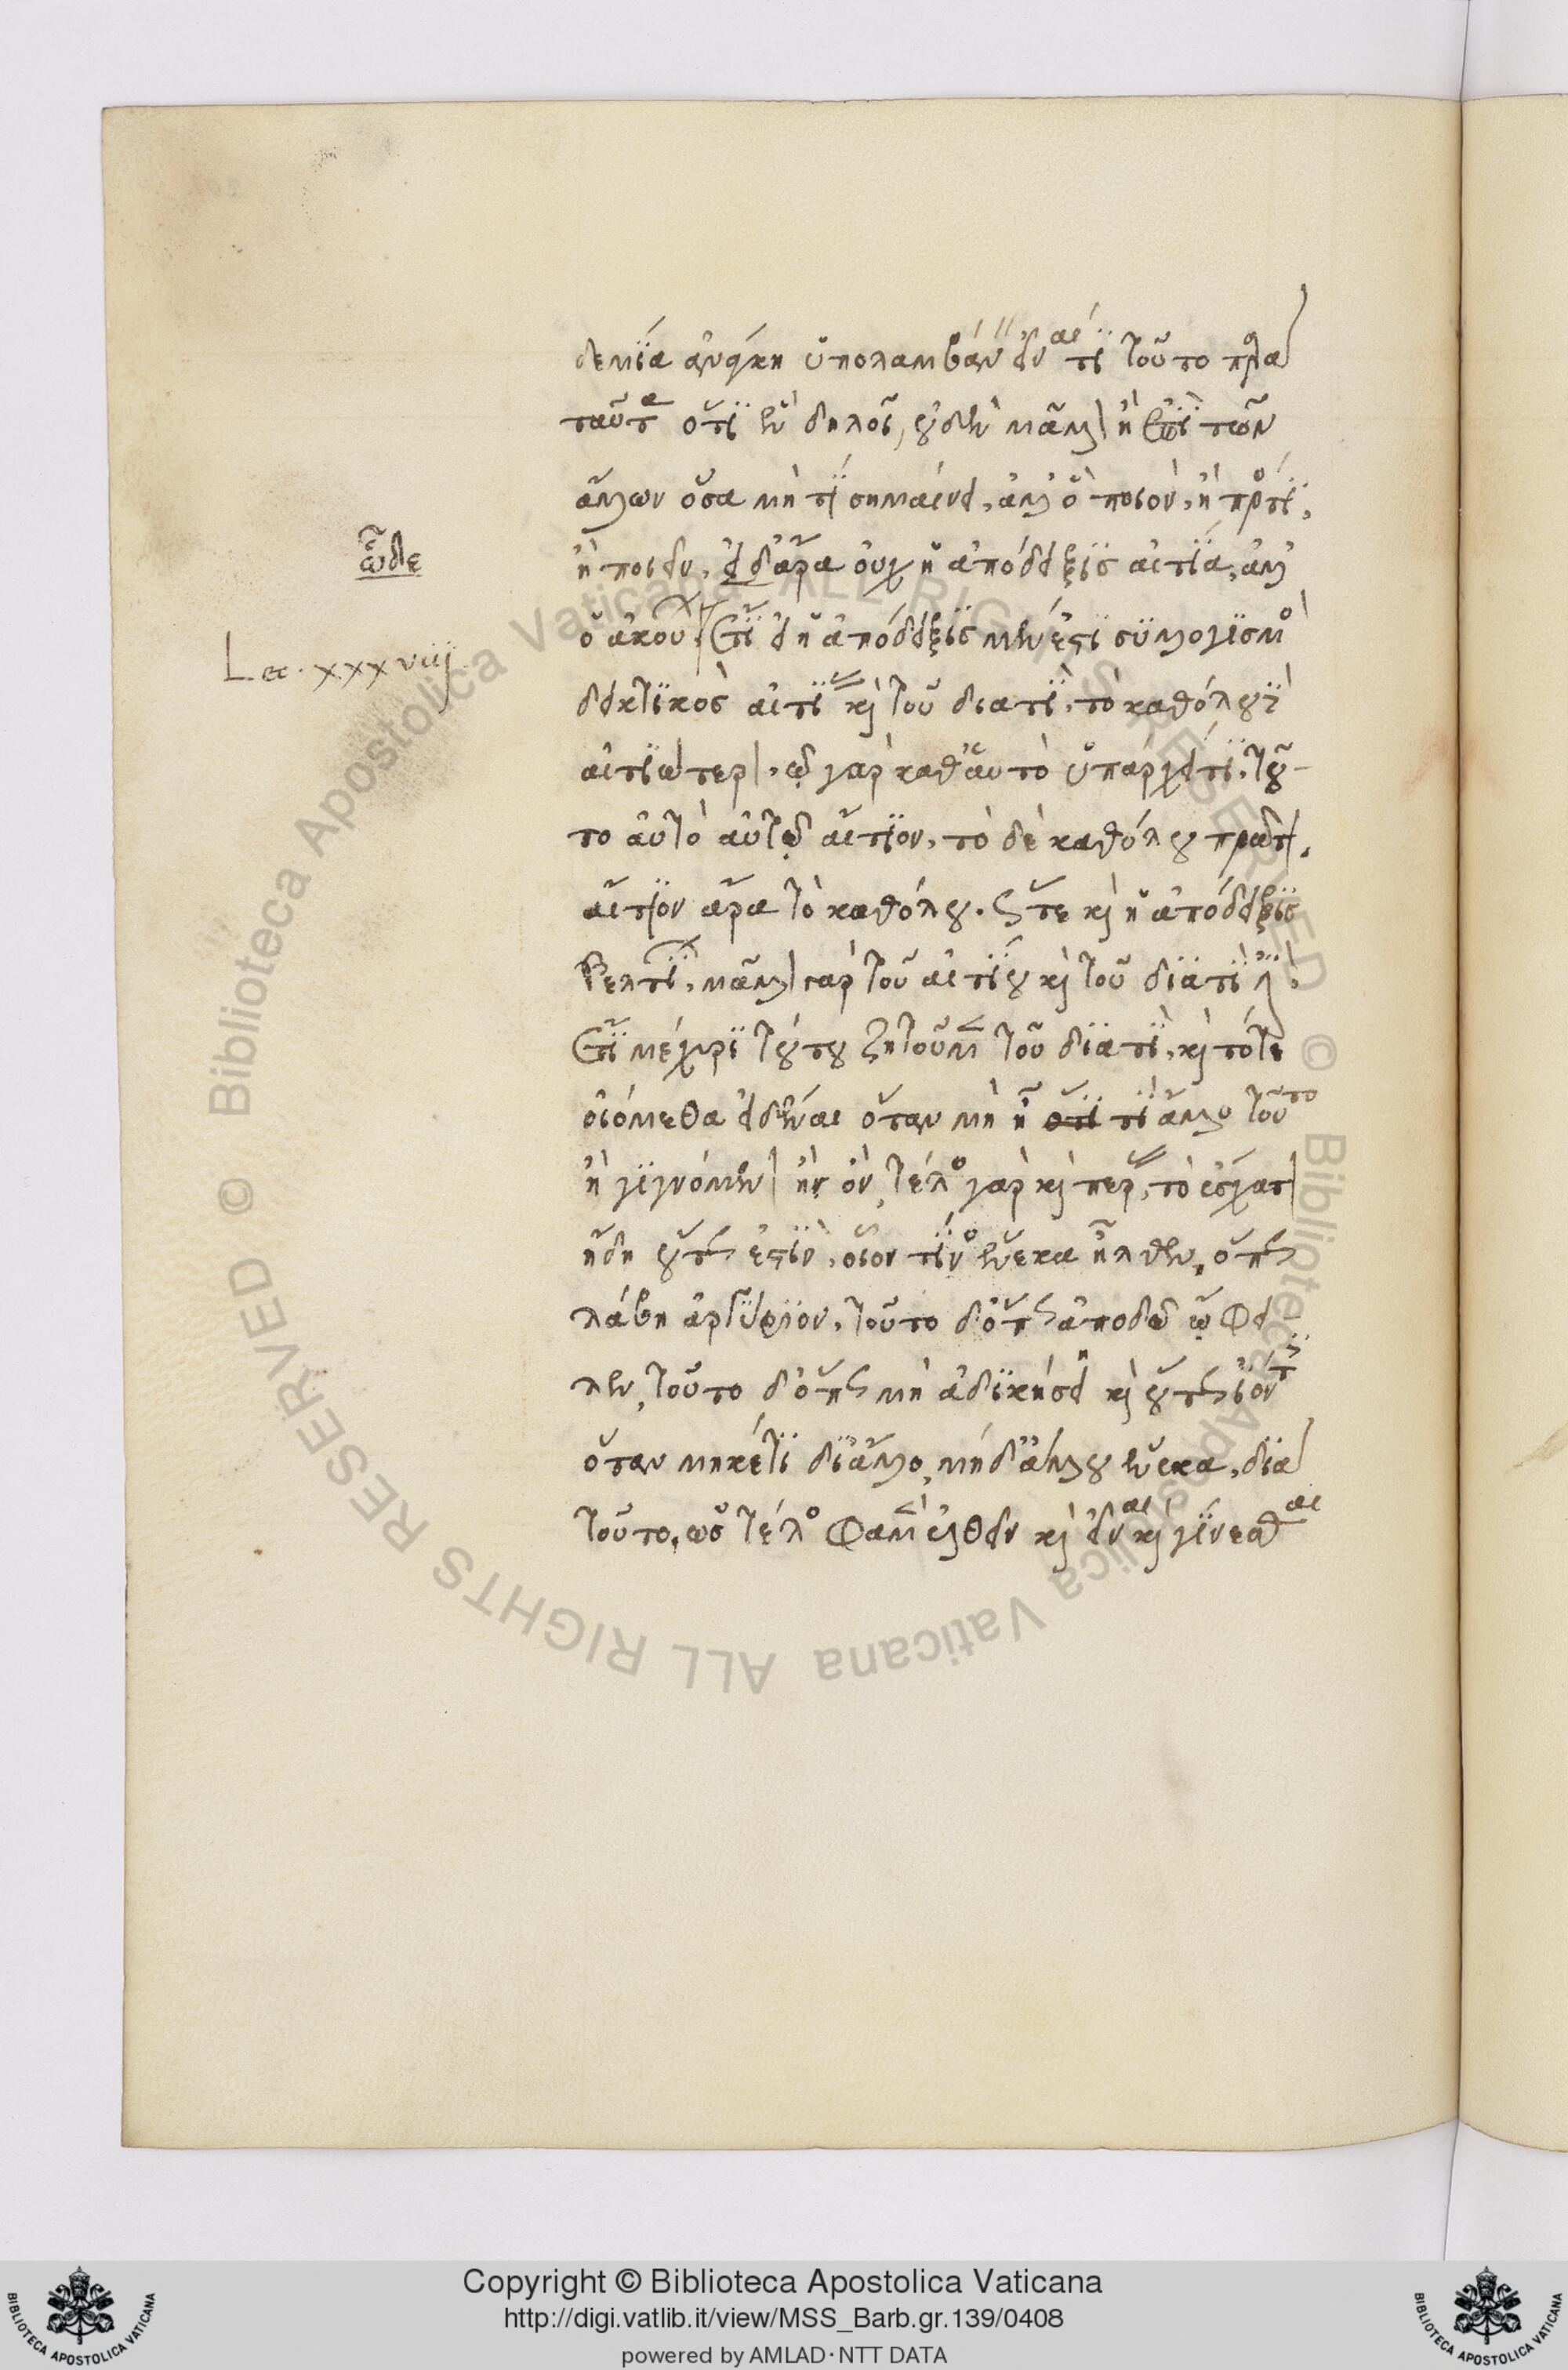 δεμία ἀνάγκη ὑπολαμβάνειν εἶναί τι τοῦτο παρὰ
ταῦτα ὅτι ἓν δηλοῖ, οὐδὲν μᾶλλον ἢ ἐπὶ τῶν
ἄλλων ὅσα μὴ τί σημαίνει, ἀλλ' ὃ ποιὸν, ἢ πρός τι,
ὧδε
ἢ ποιεῖν. εἰ δ' ἄρα οὐχ ἡ ἀπόδειξις αἰτία, ἀλλ'
ὁ ἀκούων. ἔτι εἰ ἡ ἀπόδειξις μέν ἐστι συλλογισμὸς
Lec. xxxviij
δεικτικὸς αἰτίας καὶ τοῦ διατὶ, τὸ καθόλου
αἰτιώτερον, ᾧ γὰρ καθ' αὑτὸ ὑπάρχει τι, τοῦ-
το αὐτὸ αὑτῷ αἴτιον, τὸ δὲ καθόλου πρῶτον.
αἴτιον ἄρα τὸ καθόλου. ὥστε καὶ ἡ ἀπόδειξις
βελτίων, μᾶλλον γὰρ τοῦ αἰτίου καὶ τοῦ διατί ἐστιν.
ἔτι μέχρι τούτου ζητοῦμεν τοῦ διατὶ, καὶ τότε
οἰόμεθα εἰδέναι ὅταν μὴ ᾖ ὅτι τὶ ἄλλο τοῦτο
ἢ γιγνόμενον ἢ ὂν, τέλος γὰρ καὶ πέρας, τὸ ἔσχατον
ἤδη οὕτως ἐστὶν, οἷον τίνος ἕνεκα ἦλθεν, ὅπως
λάβῃ ἀργύριον, τοῦτο δ' ὅπως ἀποδῷ ᾧ ὦφει
λεν, τοῦτο δ' ὅπως μὴ ἀδικήσει καὶ οὕτως ἰόντες
ὅταν μηκέτι δι' ἄλλο, μήδ' ἄλλου ἕνεκα, διὰ
τοῦτο, ὡς τέλος φαμὲν ἐλθεῖν καὶ εἶναι καὶ γίνεσθαι
Copyright © Biblioteca Apostolica Vaticana
http://digi.vatlib.it/view/MSS_Barb.gr.139/0408
powered by AMLAD·NTT DATA